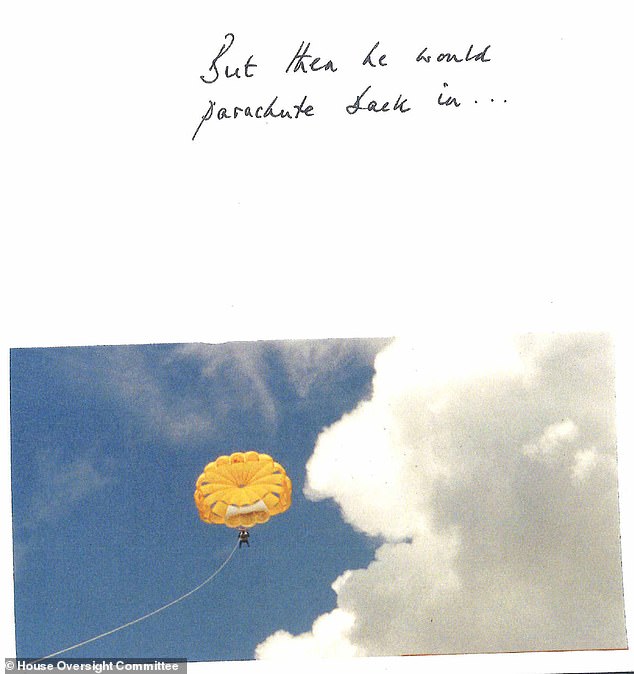 But then he would
parachute back in...
© House Oversight Committee